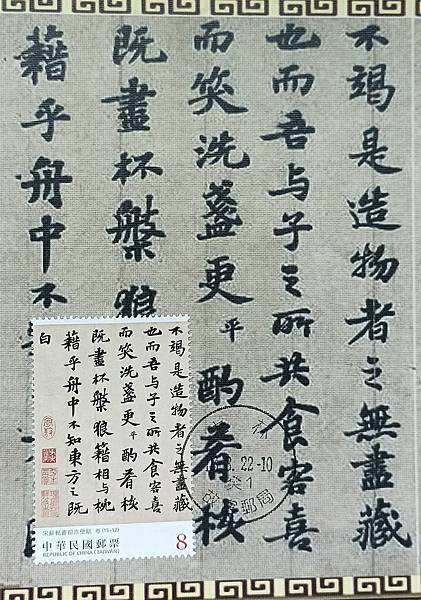 不竭是造物者之無盡藏
也而吾与子之所共食客喜
而笑洗盞更平酌肴核
既盡杯槃狼
藉乎舟中不
不竭是造物者之無盡藏
也而吾与子之所共食客喜
而笑洗盞更平酌肴核
既盡杯槃狼籍相与枕
藉乎舟中不知東方之既
白
宋蘇軾書前赤壁賦 卷(15-12)
中華民國郵票 8
REPUBLIC OF CHINA (TAIWAN)
8.22-10
郵局